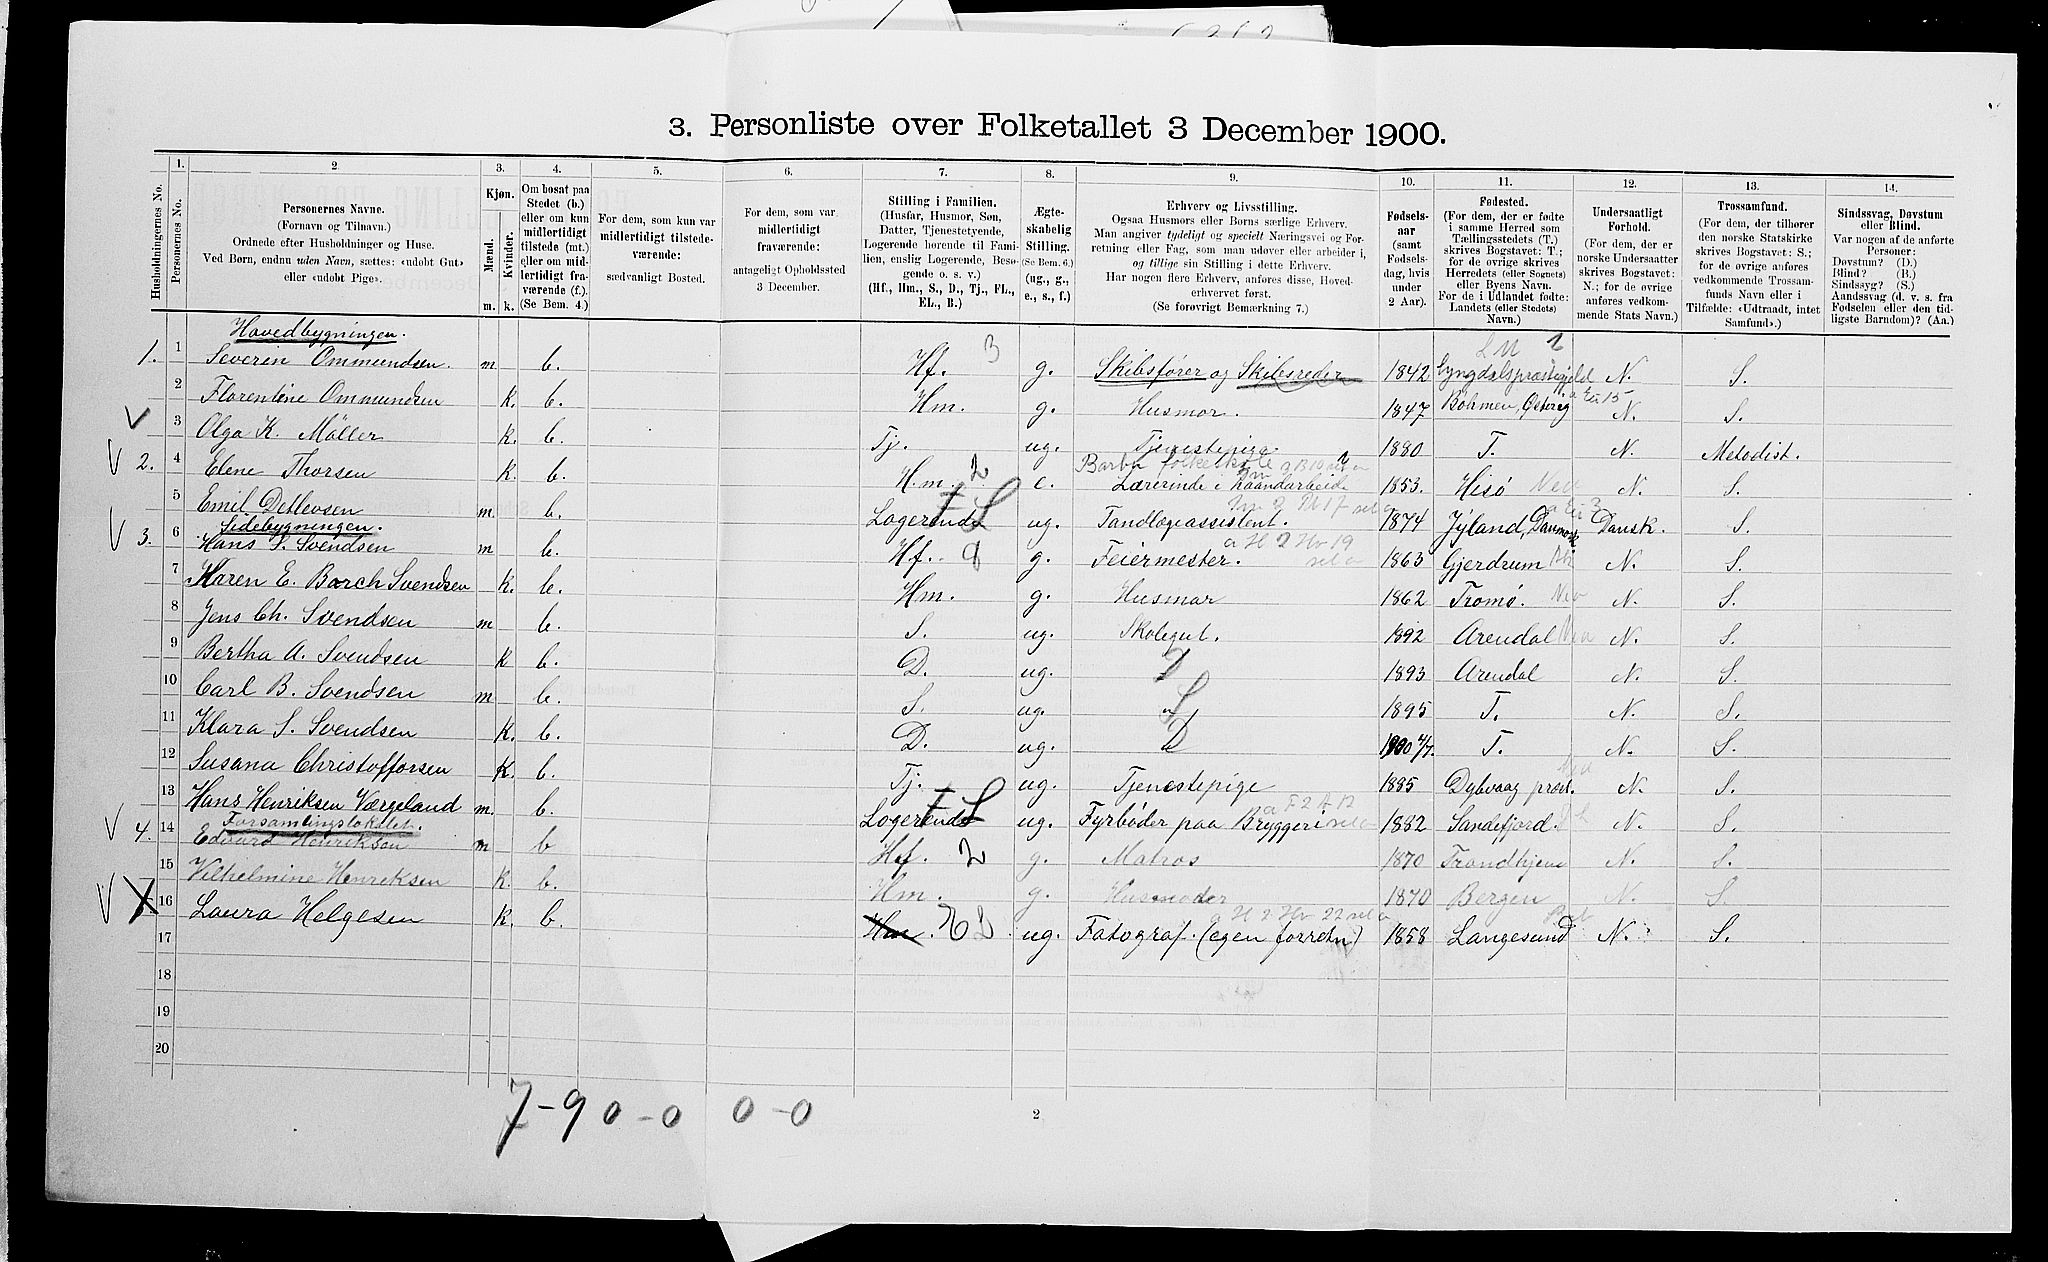 3. Personliste over Folketallet 3 December 1900.
Husholdningernes No.
1. Personernes No.
2. Personernes Navne. (Fornavn og Tilnavn.) Ordnede efter Husholdninger og Huse. Ved Børn, endnu uden Navn, sættes: «udøbt Gut» eller «udøbt Pige».
3. Kjøn. Mænd. Kvinder. m. k.
4. Om bosat paa Stedet (b.) eller om kun midlertidigt tilstede (mt.) eller om midlertidigt fraværende (f.). (Se Bem. 4.)
5. For dem, som kun var midlertidigt tilstedeværende: sædvanligt Bosted.
6. For dem, som var midlertidigt fraværende: antageligt Opholdssted 3 December.
7. Stilling i Familien. (Husfar, Husmor, Søn, Datter, Tjenestetyende, Logerende hørende til Familien, enslig Logerende, Besøgende o. s. v.) (Hf., Hm., S., D., Tj., FL., EL., B.)
8. Ægteskabelig Stilling. (Se Bem. 6.) (ug., g., e., s., f.)
9. Erhverv og Livsstilling. Ogsaa Husmors eller Børns særlige Erhverv. Man angiver tydeligt og specielt Næringsvei og Forretning eller Fag, som man udøver eller arbeider i, og tillige sin Stilling i dette Erhverv. Har nogen flere Erhverv, anføres disse, Hovederhvervet først. (Se forøvrigt Bemærkning 7.)
10. Fødselsaar (samt Fødselsdag, hvis under 2 Aar).
11. Fødested. (For dem, der er fødte i samme Herred som Tællingsstedets (T.) skrives Bogstavet: T.; for de øvrige skrives Herredets (eller Sognets) eller Byens Navn. For de i Udlandet fødte: Landets (eller Stedets) Navn.)
12. Undersaatligt Forhold. (For dem, der er norske Undersaatter skrives Bogstavet: N.; for de øvrige anføres vedkommende Stats Navn.)
13. Trossamfund. (For dem, der tilhører den norske Statskirke skrives Bogstavet: S.; for de øvrige anføres vedkommende Trossamfunds Navn eller i Tilfælde: «Udtraadt, intet Samfund».)
14. Sindssvag, Døvstum eller Blind. Var nogen af de anførte Personer: Døvstum? (D.) Blind? (B.) Sindssyg? (S.) Aandssvag (d. v. s. fra Fødselen eller den tidligste Barndom)? (Aa.)
Hovedbygningen.
1. 1 Severin Ommundsen. m b. Hf. 3 g. Skibsfører og Skibsreder 1842 Lyngdalspræstegjeld N. S.
2 Florentine Ommundsen k. b. Hm. g. Husmor. 1847 Bøhmen, Østerig N. S.
3 Olga K. Møller k. b. Tj. ug. Tjenestepige. 1880 T. N. Metodist.
2. 4 Elene Thorsen k. b. Hm. 2 e. Lærerinde i Haandarbeide 1853. Hisø N. S.
5 Emil Detlevsen m. b. Logerende ug. Tandlægeassistent. 1874 Jylland, Danmark Dansk. S.
Sidebygningen.
3. 6 Hans S. Svendsen m b. Hf. 8 g. Feiermester. 1863 Gjerdrum N. S.
7 Karen E. Borch Svendsen k. b. Hm. g. Husmor 1862 Tromø. N. S.
8 Jens Ch. Svendsen m b. S. ug. Skolegut. 1892 Arendal N. S.
9 Bertha A. Svendsen k b. D. ug. 1893 Arendal N. S.
10 Carl B. Svendsen m b. S. ug. 1895 T. N. S.
11 Klara S. Svendsen k. b. D. ug. 1900 4/7. T. N. S.
12 Susana Christofforsen k. b. Tj. ug. Tjenestepige 1885 Dybvaag præst. N. S.
13 Hans Henriksen Værgeland m. b. Logerende ug. Fyrbøder paa Bryggeri 1882 Sandefjord. N. S.
Forsamlingslokalet.
4. 14 Edvard Henriksen m b Hf. 2 g. Matros 1870 Trondhjem N. S.
15 Vilhelmine Henriksen k. b. Hm. g. Husmoder 1870 Bergen N. S.
16 Laura Helgesen k b. EL ug. Fotograf. (egen forretn) 1858 Langesund N. S.
17
18
19
20
7-9 0-0 0-0
2